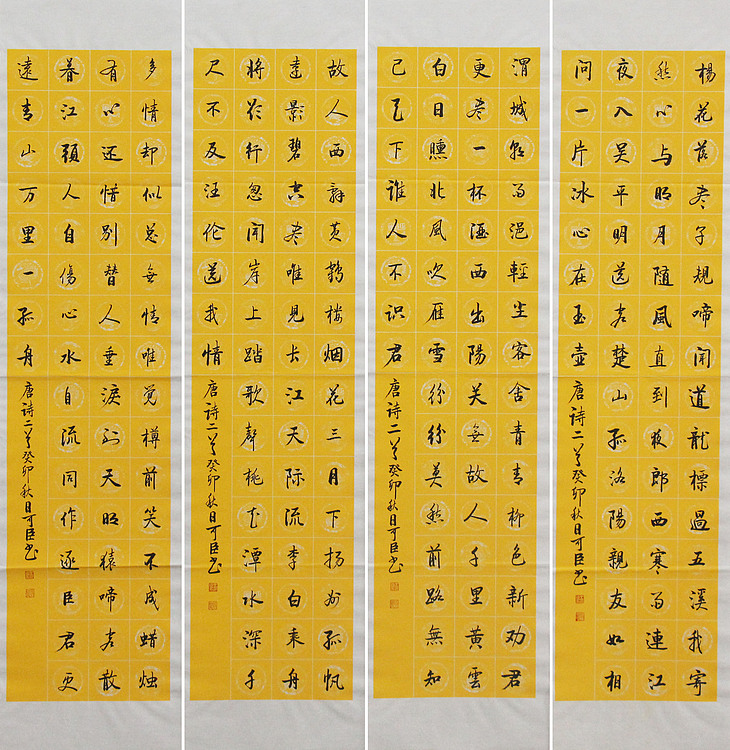 楊花落尽子規啼闻道龍標過五溪我寄
愁心与明月随風直到夜郎西寒雨連江
夜入吴平明送客楚山孤洛陽親友如相
問一片冰心在玉壶
唐诗二首癸卯秋日可臣书
渭城朝雨浥輕尘客舍青青柳色新劝君
更尽一杯酒西出陽关無故人千里黄雲
白日曛北風吹雁雪纷纷莫愁前路無知
己天下谁人不识君
唐诗二首癸卯秋日可臣书
故人西辞黄鹤楼烟花三月下扬州孤帆
遠影碧空尽唯見长江天际流李白乘舟
将欲行忽闻岸上踏歌聲桃花潭水深千
尺不及汪伦送我情
唐诗二首癸卯秋日可臣书
多情却似总無情唯觉樽前笑不成蜡烛
有心还惜别替人垂淚到天明猿啼客散
暮江頭人自傷心水自流同作逐臣君更
遠青山万里一孤舟
唐诗二首癸卯秋日可臣书